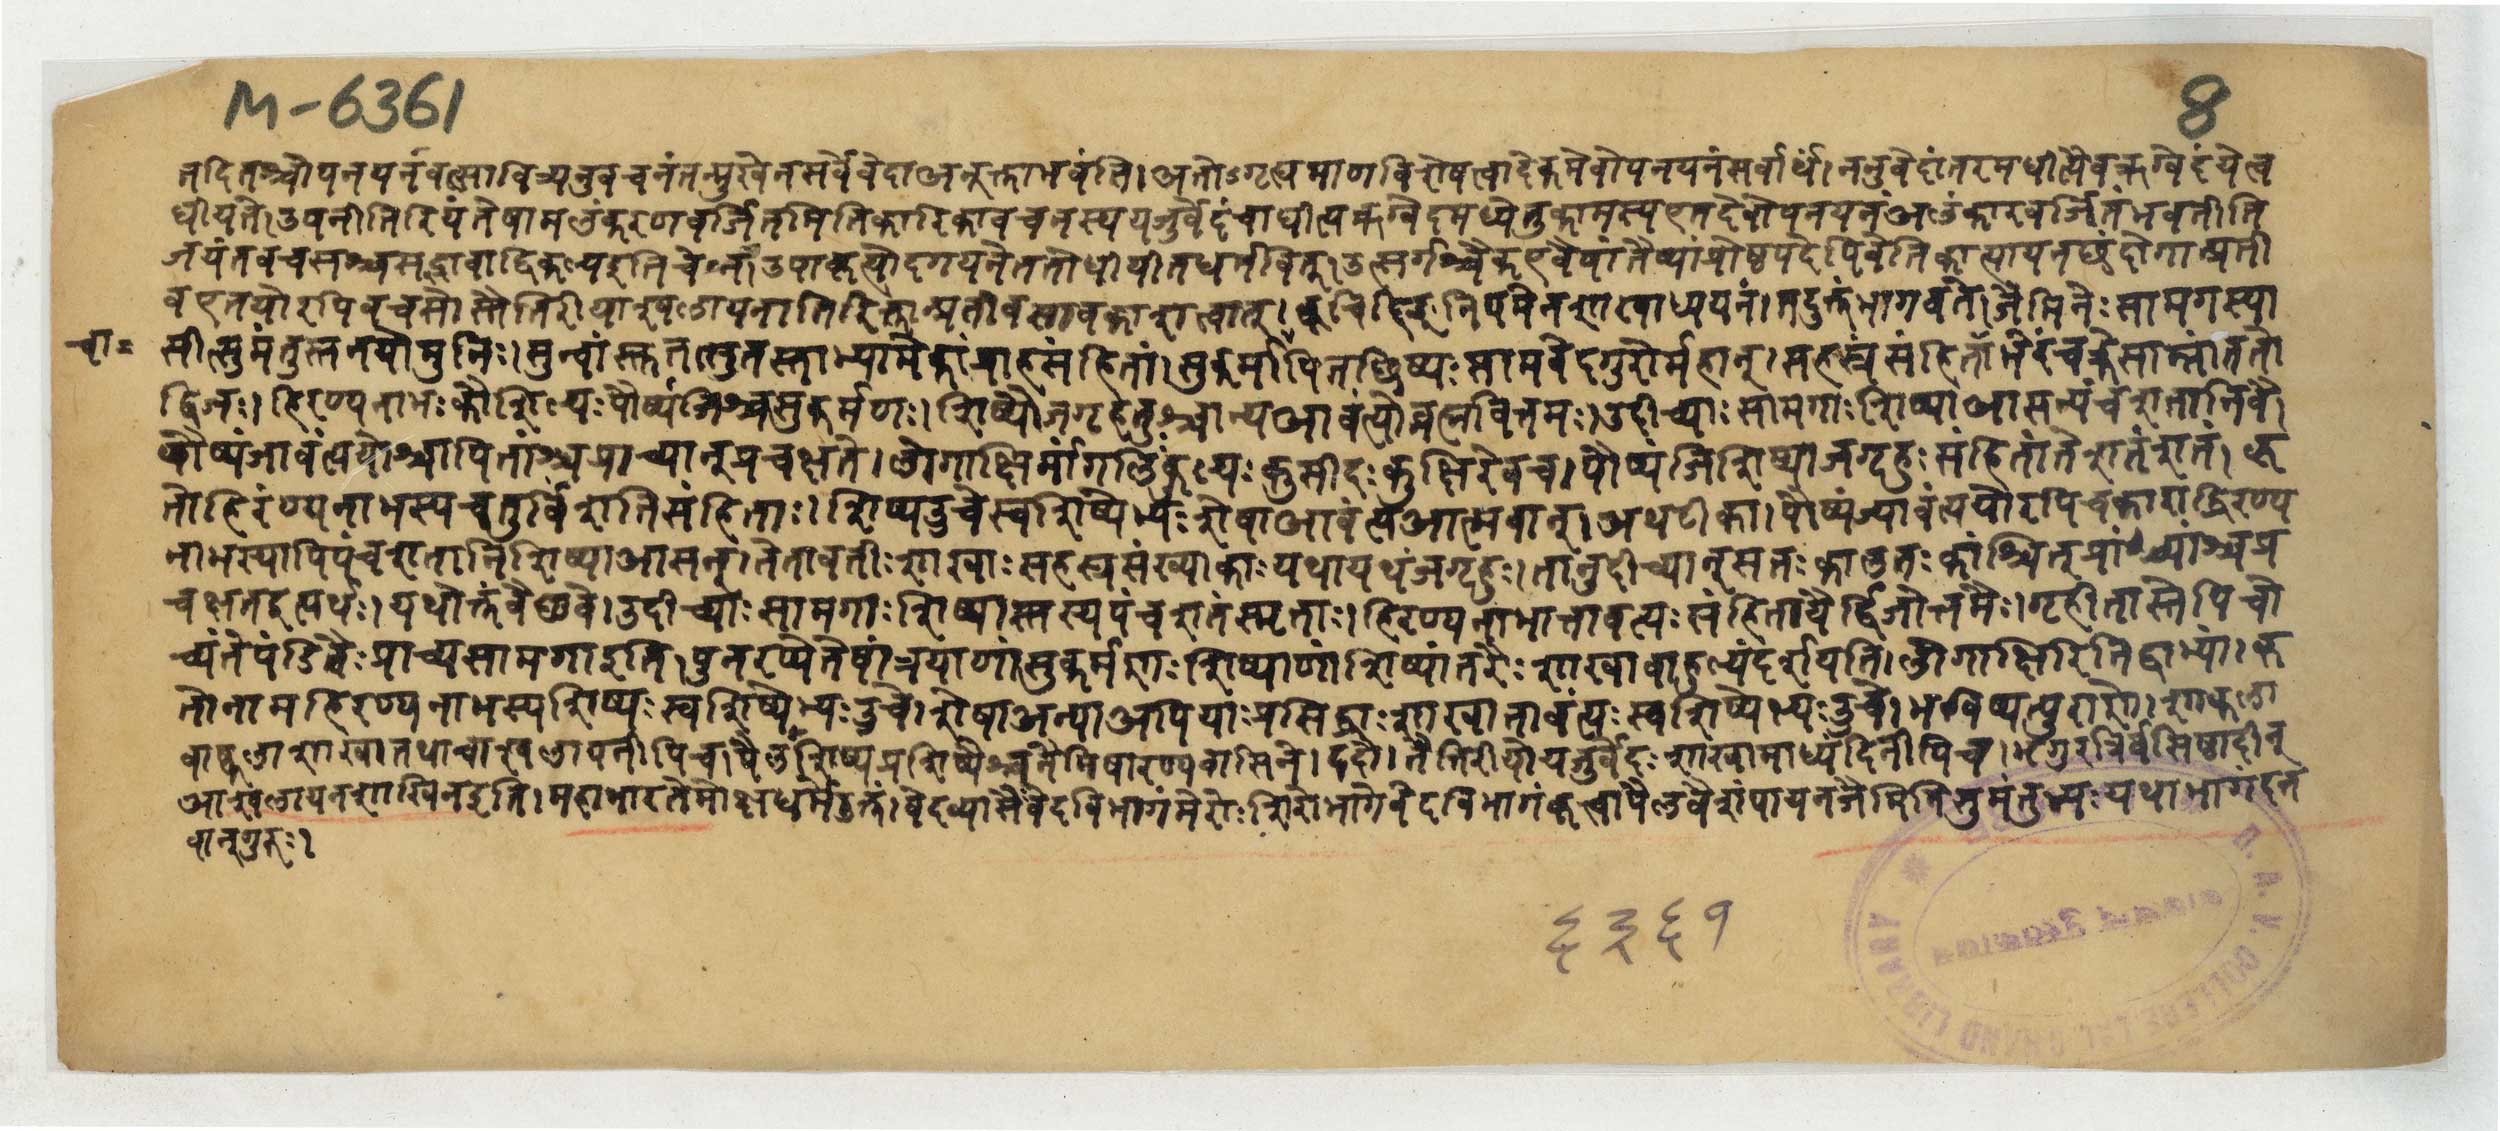 M-6361
8
तदितश्चोपनयनंवत्सावित्र्यनुवचनंतन्मुखेनसर्वेवेदाअनूक्ताभवंति।अतोऽगृह्यमाणविशेषत्वादेकमेवोपनयनंसर्वार्थं।ननुवेदांतरमधीत्यैवऋग्वेदंयेत्व
धीयंते।उपनीतिरियंतेषामलंकरणवर्जितमितिकारिकावचनस्ययजुर्वेदंवाधीत्यऋग्वेदमध्येतुकामस्यएतदेवोपनयनंअलंकारवर्जितंभवतीति
जयंतवचसश्चसद्भावाद्विकल्पइतिचेन्न।उपाकृत्योदगयनेततोधीयीतधर्मवित्।उत्सर्गश्चैकएवैषांतैष्यांप्रौष्ठपदेपिवेतिकात्यायनछंदोगान्प्रती
वएतयोरपिवचसोस्तैत्तिरीयाखण्डायनातिरिक्तान्प्रतीवसावकाशत्वात्।
तदुक्तंभागवते।जैमिनेःसामगस्या
चा=
सीत्सुमंतुस्तनयोमुनिः।सुन्वांस्तुतत्सुतस्ताभ्यामेकैकांप्राहसंहितां।सुकर्मापितच्छिष्यःसामवेदगुरोर्महान्।सहस्रसंहिताभेदंचक्रेसाम्नांततो
द्विजः।हिरण्यनाभःकौशिल्यःपौष्यंजिश्चसुकर्मणः।शिष्यौजगृहतुश्चान्यआवंत्योब्रह्मवित्तमः।उदीच्याःसामगाःशिष्याआसन्पंचशतानिवै।
पौष्यंजावंत्ययोश्चापितांश्चप्राच्यान्प्रचक्षते।लोगाक्षिर्मांगलिःकुल्यःकुसीदःकुक्षिरेवच।पौष्यंजिशिष्याजगृहुःसंहितांतेशतंशतं।कृ
तोहिरण्यनाभस्यचतुर्विंशतिसंहिताः।शिष्यउचेस्वशिष्येभ्यःशेषाआवंत्यआत्मवान्।अथटीका।पौष्यंज्यावंत्ययोरपिचकाराद्धिरण्य
नाभस्यापिपंचशतानिशिष्याआसन्।तेतावतीःशाखाःसहस्रसंख्याकाःयथायथंजगृहुः।तानुदीच्यान्सतःकालतःकांश्चित्प्राच्यांश्चप्र
चक्षतइत्यर्थः।यथोक्तंवैष्णवे।उदीच्याःसामगाःशिष्यास्तस्यपंचशतंस्मृताः।हिरण्यनाभात्तावत्यःसंहितायैर्द्विजोत्तमैः।गृहीतास्तेपिचो
च्यंतेपंडितैःप्राच्यसामगाइति।पुनरप्येतेषांत्रयाणांसुकर्मशःशिष्याणांशिष्यांतरैःशाखाबाहुल्यंदर्शयति।लौगाक्षिरितिद्वाभ्यां।कृ
तोनामहिरण्यनाभस्यशिष्यःस्वशिष्येभ्यःउचे।शेषाअन्याअपियाःप्रसिद्धाःशाखाताआवंत्यःस्वशिष्येभ्यःउचे।भविष्यत्पुराणे।शाकला
बाष्कलाशाखातथाचाखलायनीपिच।पैलशिष्यप्रशिष्यैश्चनैमिषारण्यवासिने।ददौ।तैत्तिरीयोयजुर्वेदःशाखामाध्यंदिनीपिच।भृगुरत्रिर्वसिष्ठादीन्
आखंलायनशाखिनइति।महाभारतेमोक्षधर्मेउक्तं।वेदव्यासेवेदविभागंमेरोःशिरोभागेवेदविभागंकृत्वापैलवैशंपायनजैमिनिसुमंतुभ्यःयथाभागंदत्त
वान्गुरुः।
६३६१
D. A. V. COLLEGE LAL CHAND LIBRARY